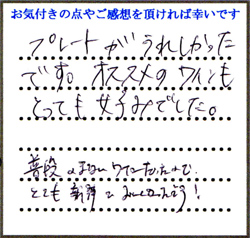 お気付きの点やご感想を頂ければ幸いです
プレートがうれしかった
です。オススメのワインも
とっても好みでした。
普段のまないワインだったので
とても新鮮でおいしかったです!